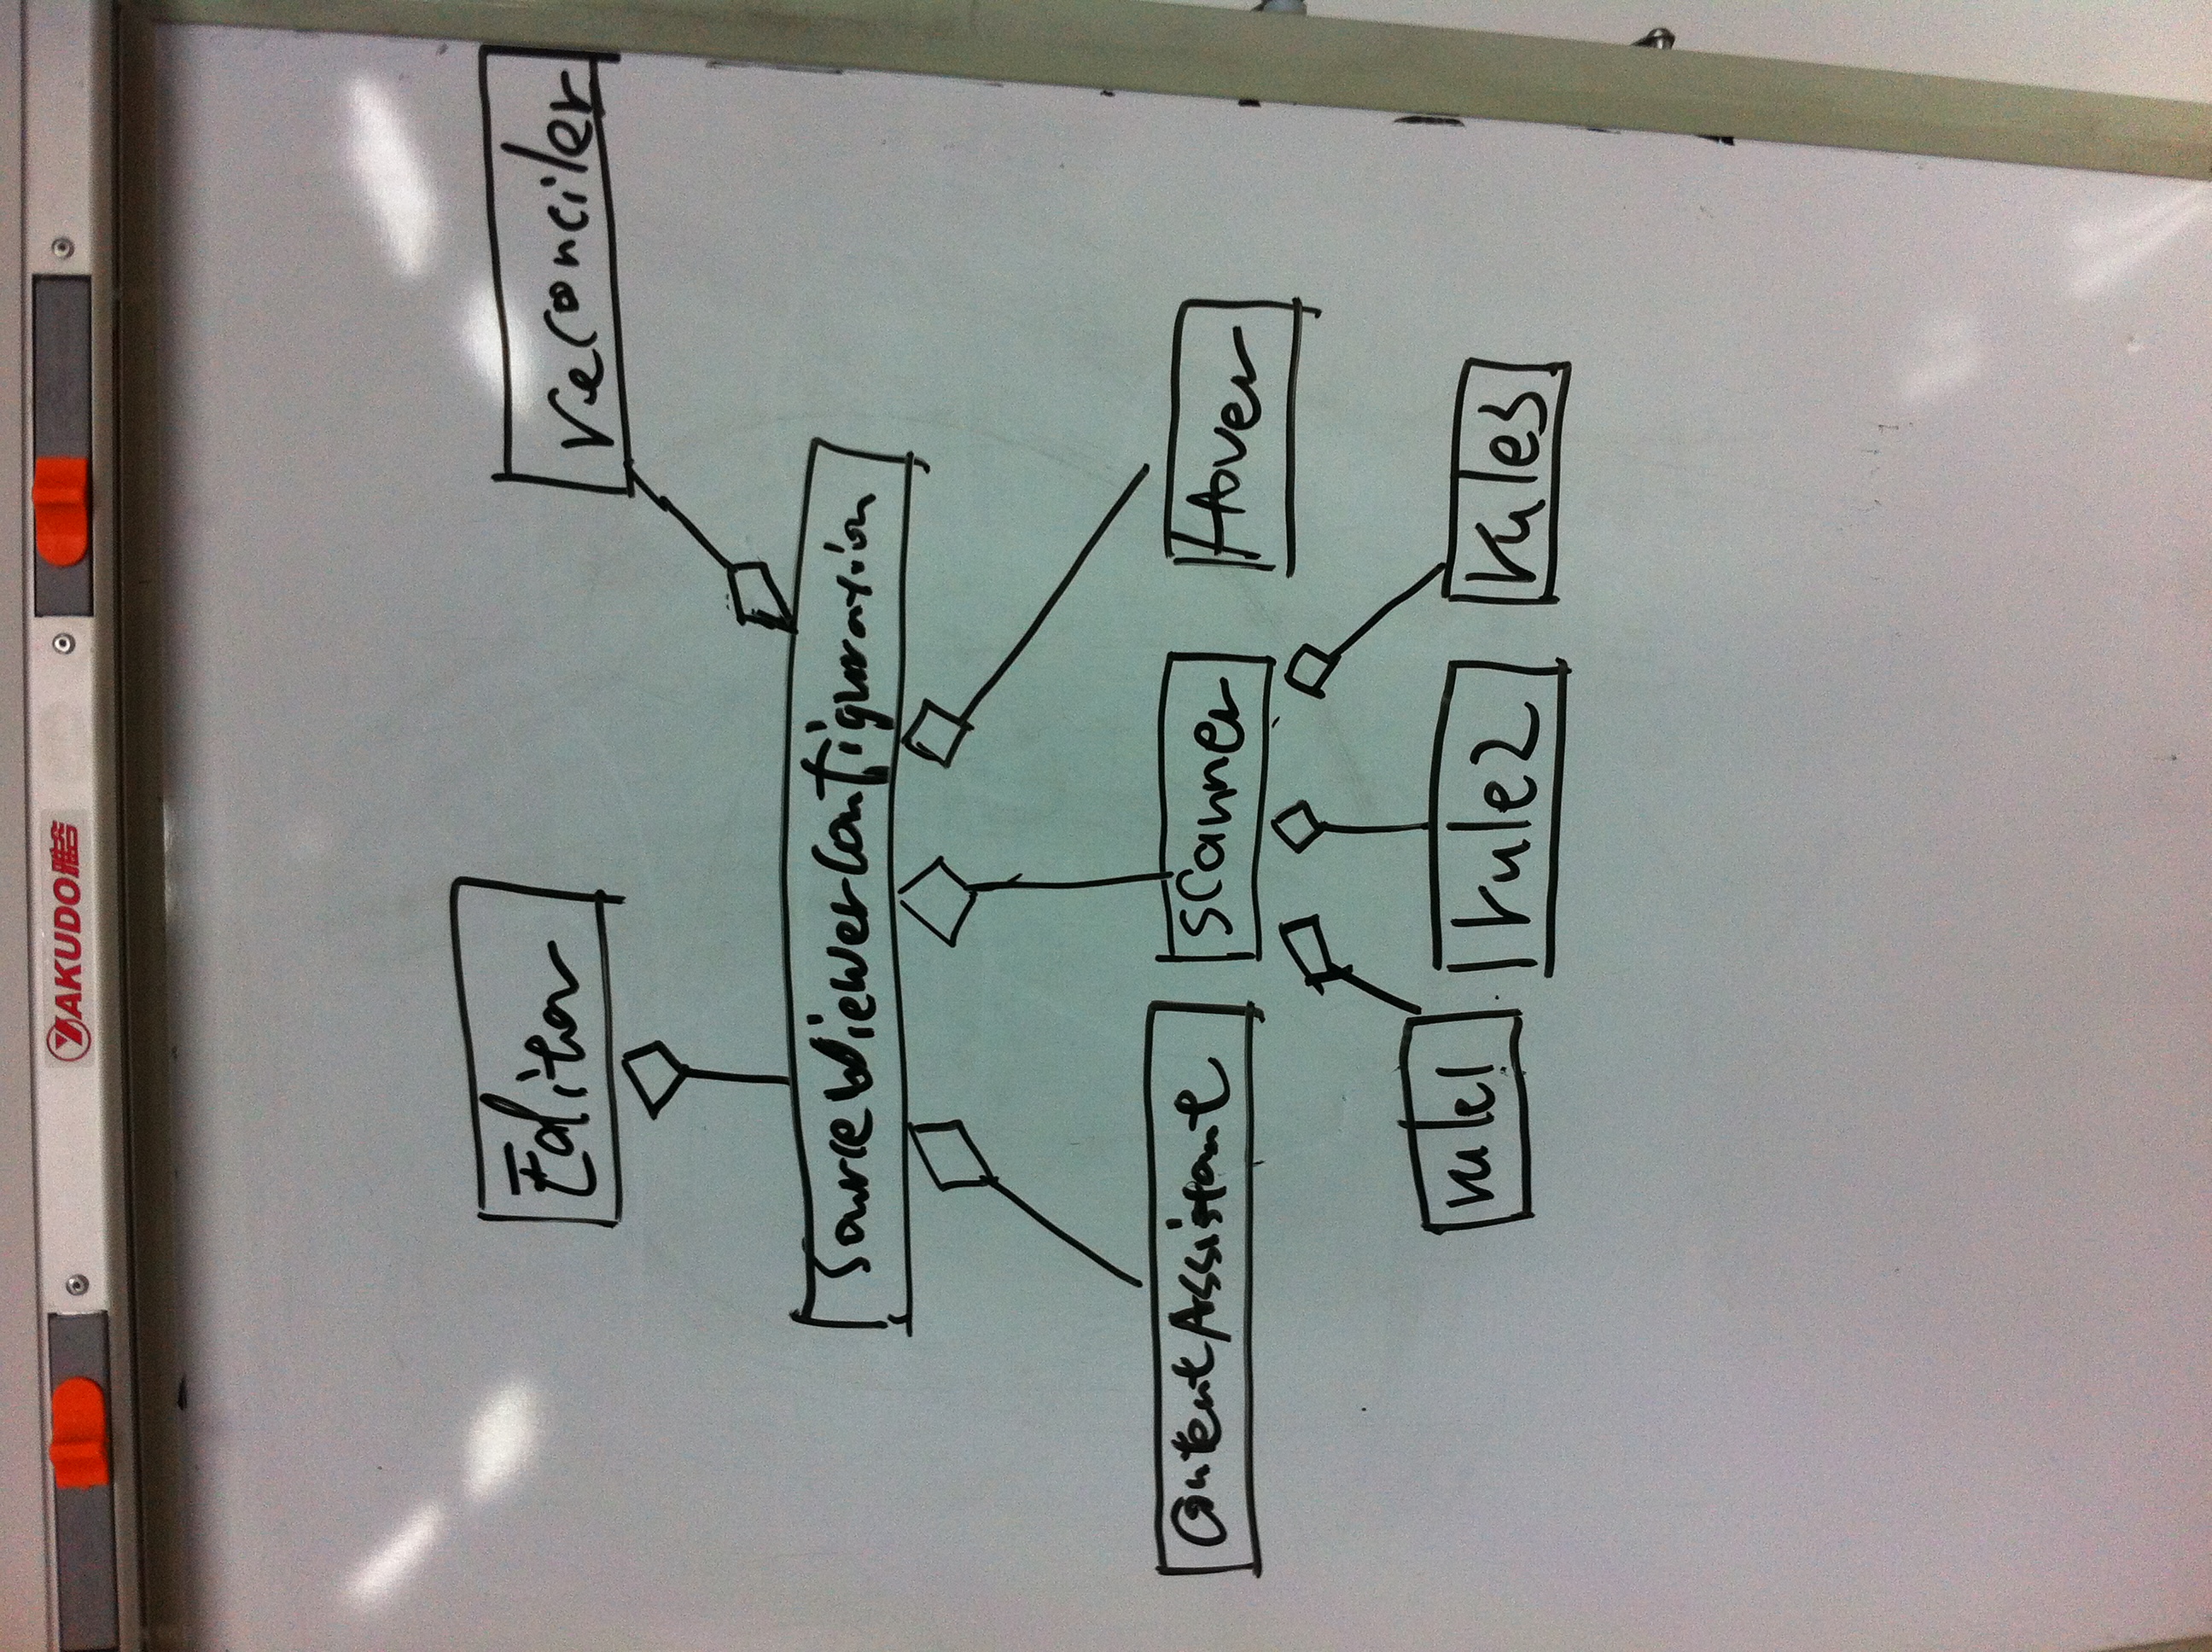 YAKUDO雅谷
Editor
reconciler
SourceViewerConfiguration
ContentAssistant
scanner
Hover
rule1
rule2
rule3